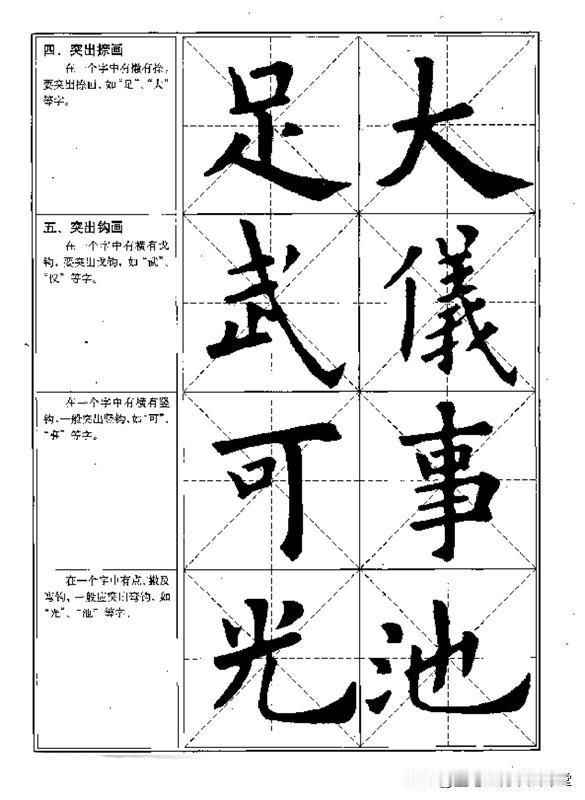 四、突出捺画
在一个字中有撇有捺，
要突出捺画，如“足”、“大”
等字。
足 大
五、突出钩画
在一个字中有横有戈
钩，要突出戈钩，如“武”、
“仪”等字。
武 儀
在一个字中有横有竖
钩，一般突出竖钩，如“可”、
“事”等字。
可 事
在一个字中有点、撇及
弯钩，一般应突出弯钩，如
“光”、“池”等字。
光 池